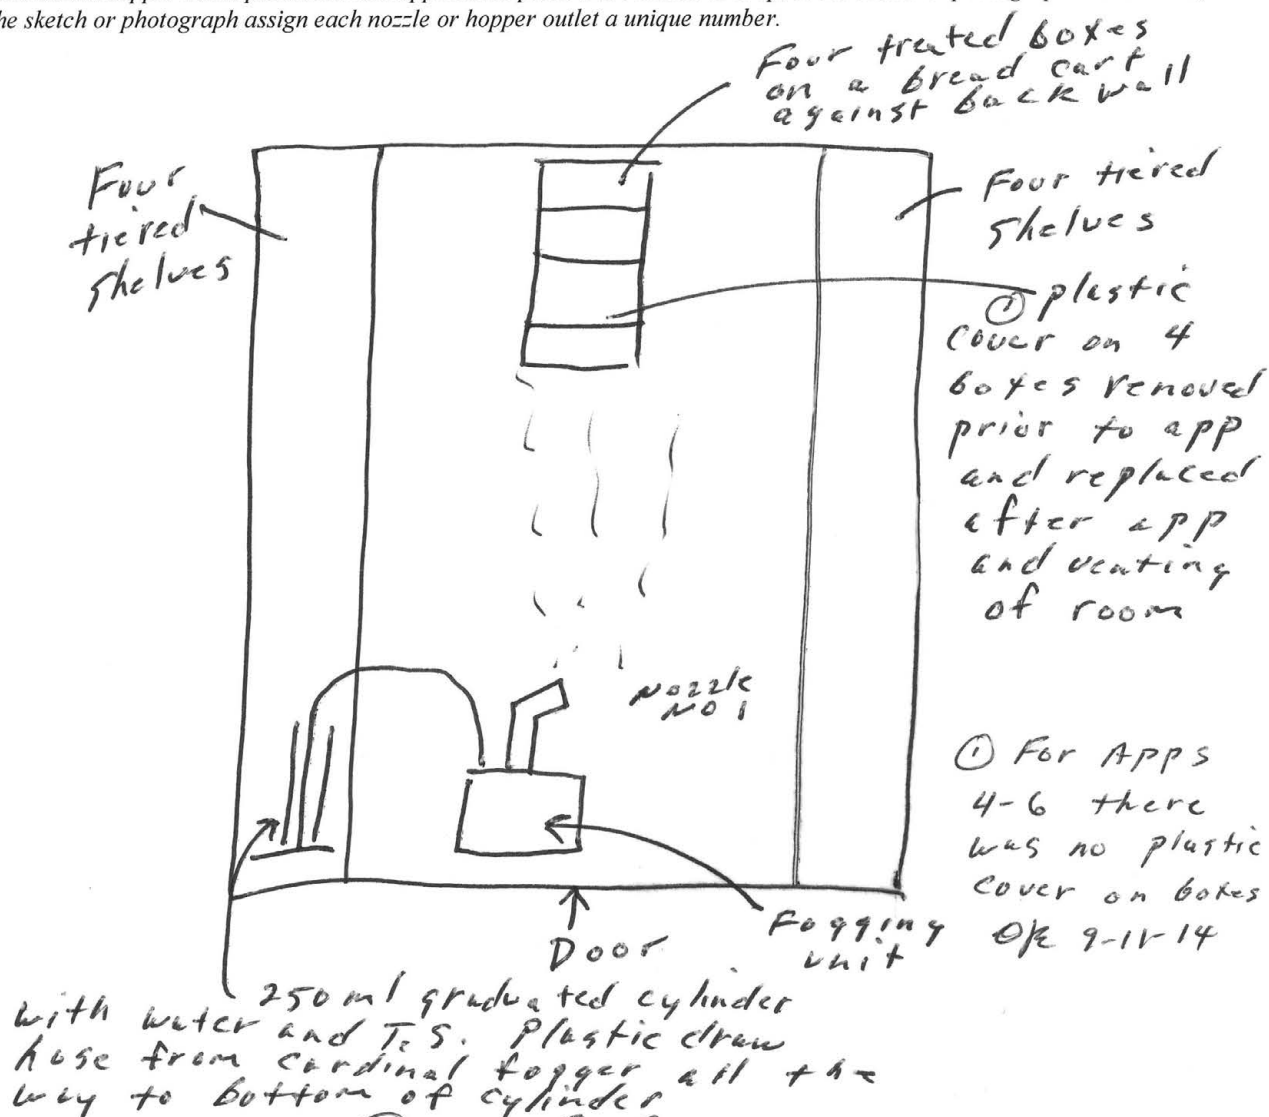 he sketch or photograph assign each nozzle or hopper outlet a unique number.
Four treated boxes
on a bread cart
against back wall
Four
tiered
shelves
Four tiered
shelves
① plastic
cover on 4
boxes removed
prior to app
and replaced
after app
and venting
of room
Nozzle
No 1
① For Apps
4-6 there
was no plastic
cover on boxes
9-11-14
Fogging
unit
Door
250 ml graduated cylinder
with water and T.S. Plastic draw
hose from cardinal fogger all the
way to bottom of cylinder